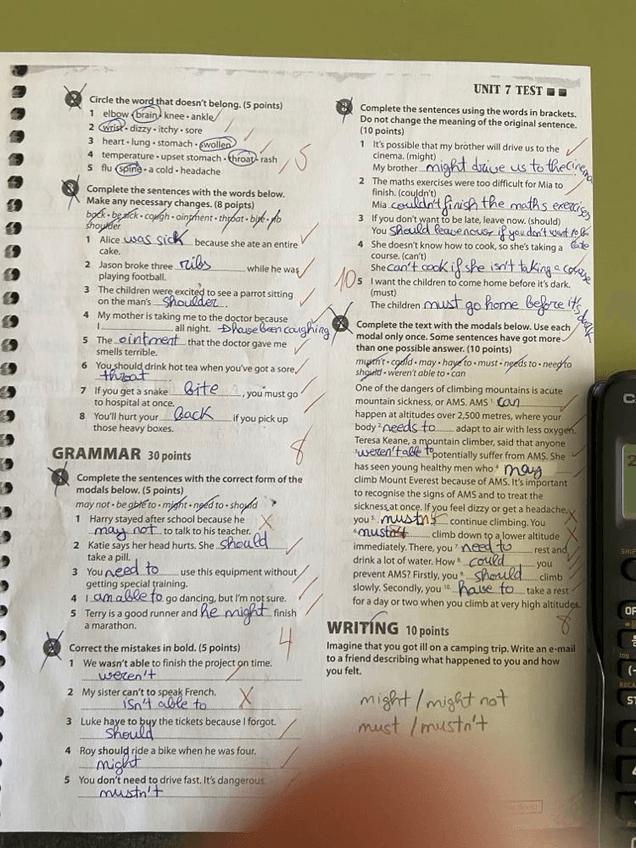 UNIT 7 TEST
2 Circle the word that doesn't belong. (5 points)
1 elbow • brain • knee • ankle
2 wrist • dizzy • itchy • sore
3 heart • lung • stomach • swollen
4 temperature • upset stomach • throat • rash
5 flu • spine • a cold • headache
5
3 Complete the sentences with the words below.
Make any necessary changes. (8 points)
back • be sick • cough • ointment • throat • bite • rib
shoulder
1 Alice was sick because she ate an entire
cake.
2 Jason broke three ribs while he was
playing football.
3 The children were excited to see a parrot sitting
on the man's shoulder.
4 My mother is taking me to the doctor because
I all night. I have been coughing
5 The ointment that the doctor gave me
smells terrible.
6 You should drink hot tea when you've got a sore
throat
7 If you get a snake bite, you must go
to hospital at once.
8 You'll hurt your back if you pick up
those heavy boxes.
8
GRAMMAR 30 points
Complete the sentences with the correct form of the
modals below. (5 points)
may not • be able to • might • need to • should
1 Harry stayed after school because he
may not to talk to his teacher.
2 Katie says her head hurts. She should
take a pill.
3 You need to use this equipment without
getting special training.
4 I am able to go dancing, but I'm not sure.
5 Terry is a good runner and he might finish
a marathon.
4
2 Correct the mistakes in bold. (5 points)
1 We wasn't able to finish the project on time.
weren't
2 My sister can't to speak French.
isn't able to
3 Luke have to buy the tickets because I forgot.
should
4 Roy should ride a bike when he was four.
might
5 You don't need to drive fast. It's dangerous.
mustn't
3 Complete the sentences using the words in brackets.
Do not change the meaning of the original sentence.
(10 points)
1 It's possible that my brother will drive us to the
cinema. (might)
My brother might drive us to the cinema
2 The maths exercises were too difficult for Mia to
finish. (couldn't)
Mia couldn't finish the maths exercises
3 If you don't want to be late, leave now. (should)
You should leave now if you don't want to be
late
4 She doesn't know how to cook, so she's taking a
course. (can't)
She can't cook if she isn't taking a course
10
5 I want the children to come home before it's dark.
(must)
The children must go home before it's
dark
4 Complete the text with the modals below. Use each
modal only once. Some sentences have got more
than one possible answer. (10 points)
mustn't • could • may • have to • must • needs to • need to
should • weren't able to • can
One of the dangers of climbing mountains is acute
mountain sickness, or AMS. AMS 1 can
happen at altitudes over 2,500 metres, where your
body 2 needs to adapt to air with less oxygen.
Teresa Keane, a mountain climber, said that anyone
3 weren't able to potentially suffer from AMS. She
has seen young healthy men who 4 may
climb Mount Everest because of AMS. It's important
to recognise the signs of AMS and to treat the
sickness at once. If you feel dizzy or get a headache,
you 5 mustn't continue climbing. You
6 must climb down to a lower altitude
immediately. There, you 7 need to rest and
drink a lot of water. How 8 could you
prevent AMS? Firstly, you 9 should climb
slowly. Secondly, you 10 have to take a rest
for a day or two when you climb at very high altitudes.
8
WRITING 10 points
Imagine that you got ill on a camping trip. Write an e-mail
to a friend describing what happened to you and how
you felt.
might / might not
must / mustn't